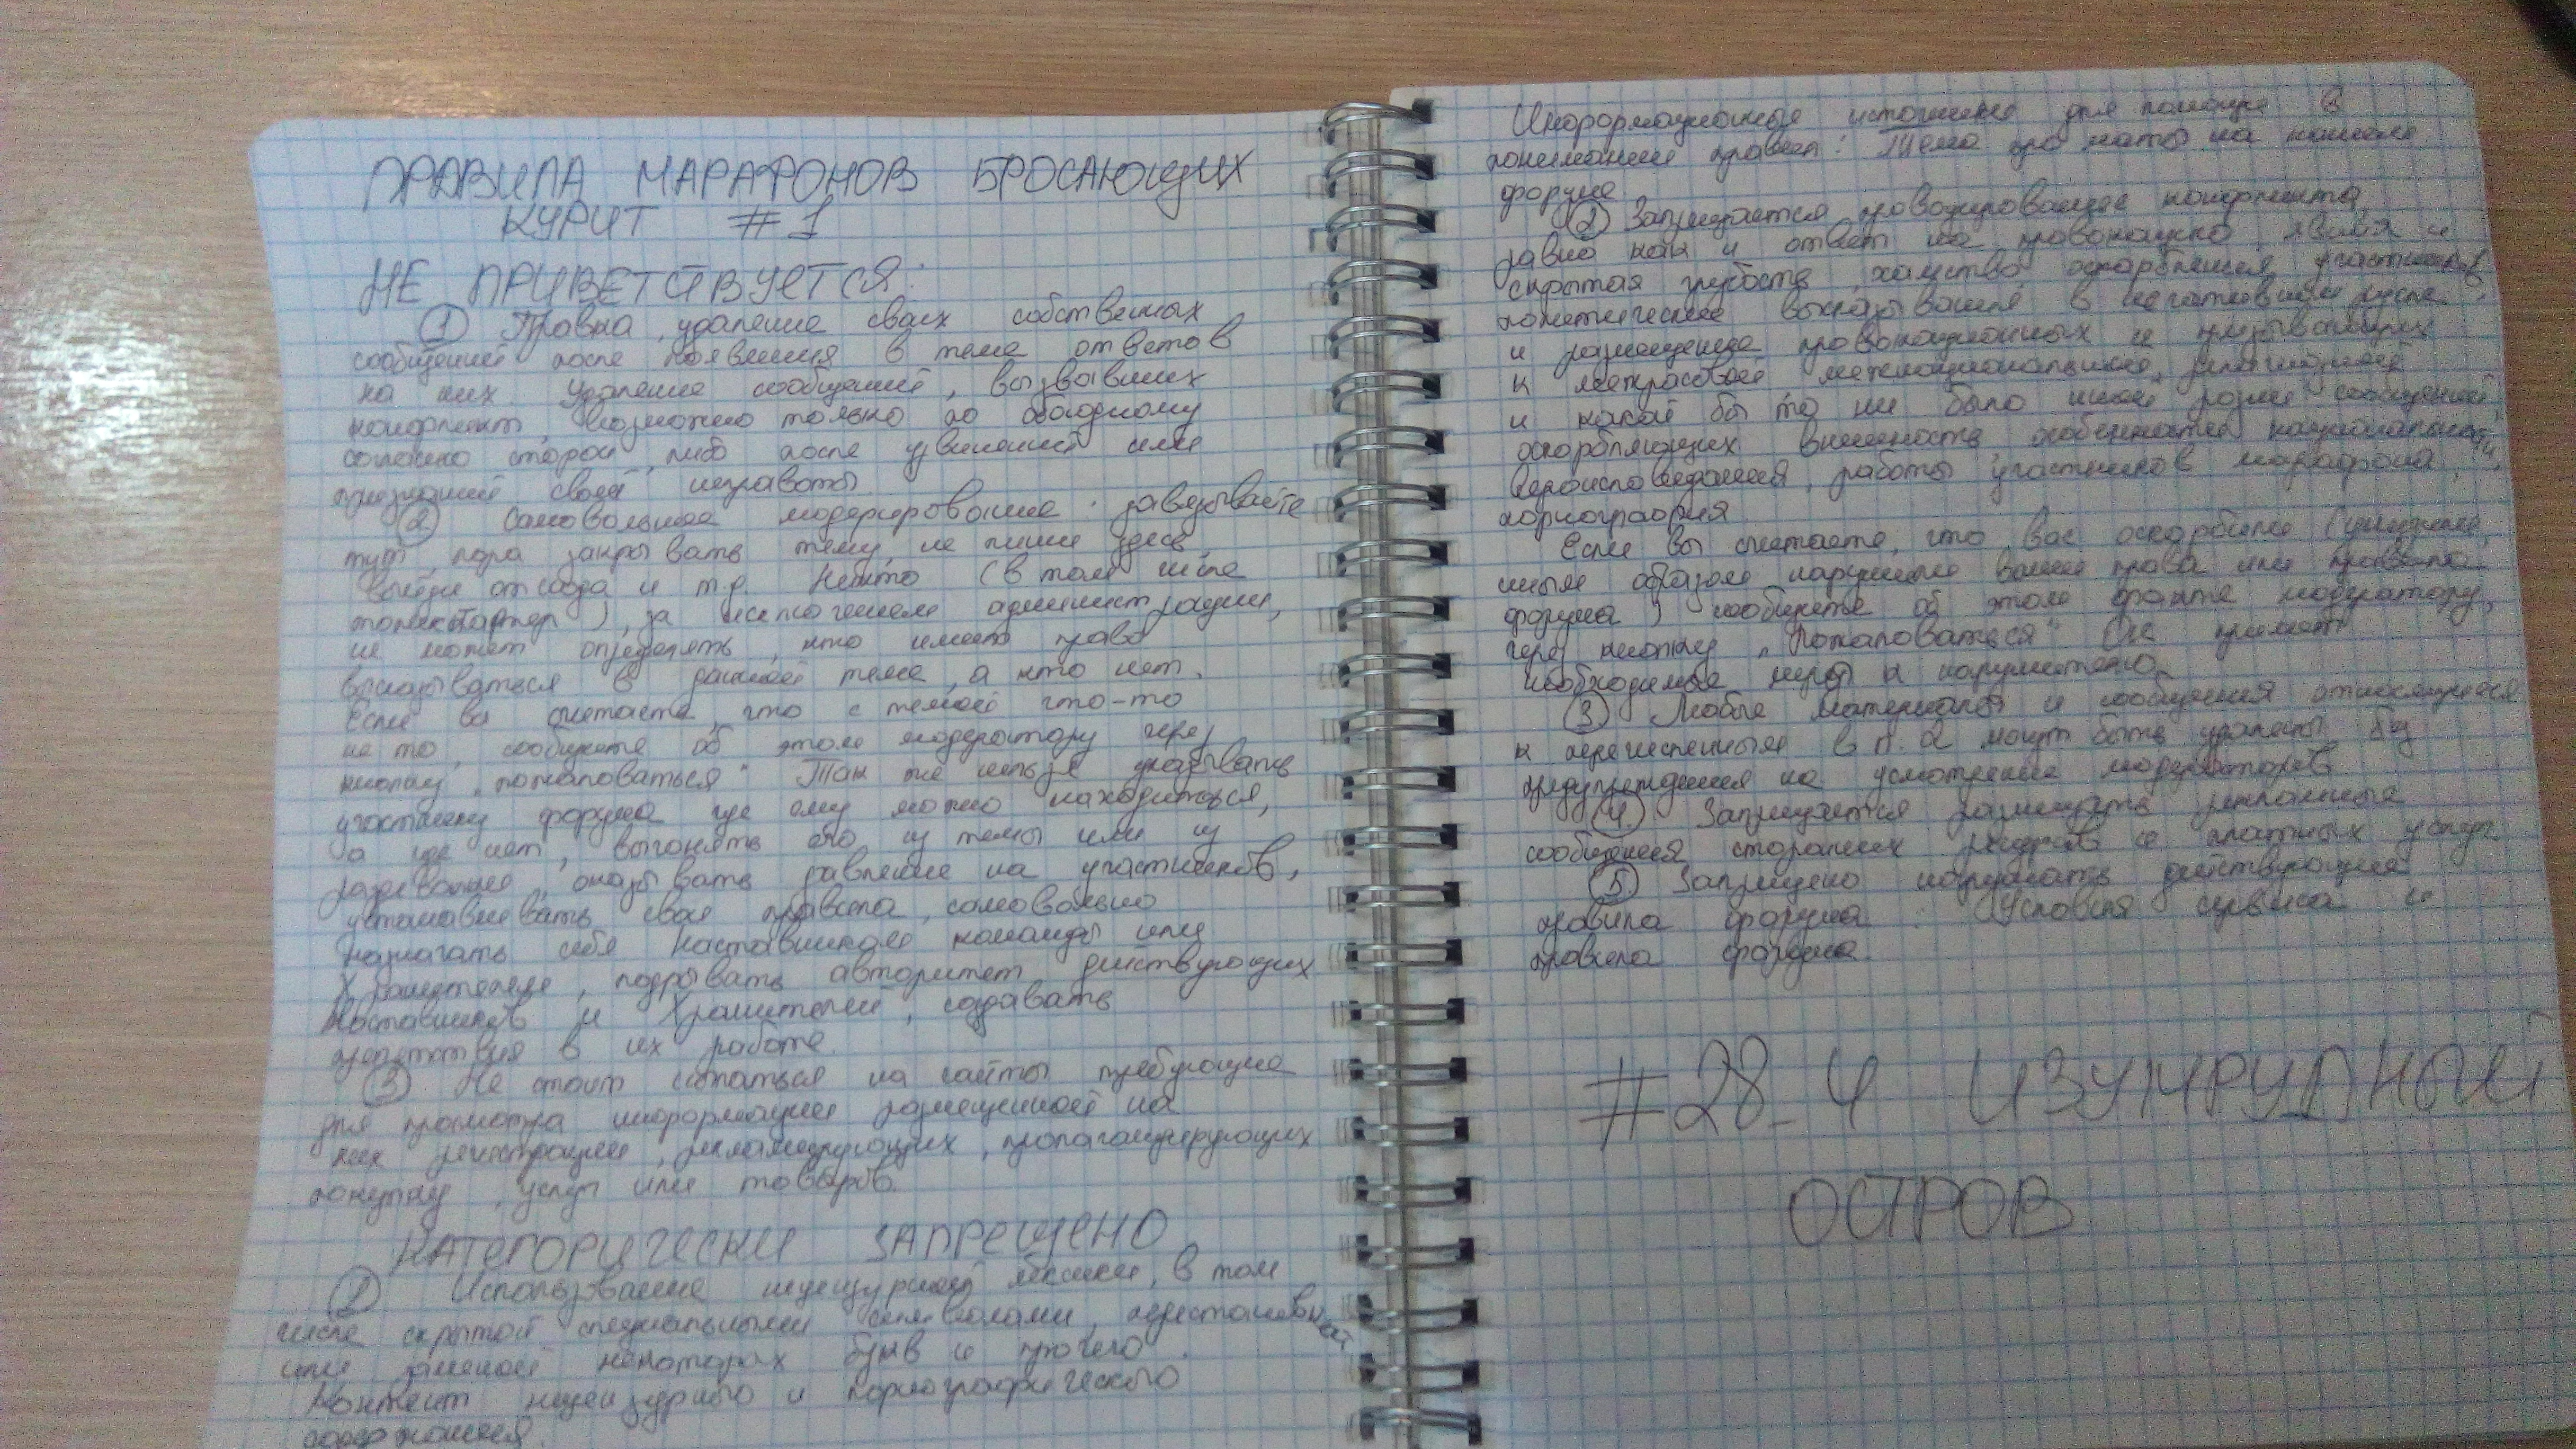 ПРАВИЛА МАРАФОНОВ БРОСАЮЩИХ
КУРИТ #1
НЕ ПРИВЕТСТВУЕТСЯ:
① Правка, удаление своих собственных
сообщений после появления в теме ответов
на них. Удаление сообщений, вызвавших
конфликт, возможно только по обоюдному
согласию сторон, либо после извинений или
признаний своей неправоты
② Самовольное модерирование: завязывайте
тут, пора закрывать тему, не пиши здесь,
выйди отсюда и т.д. Никто (в том числе
топикстартер), за исключением администрации,
не может определять, кто имеет право
высказываться в данной теме, а кто нет.
Если вы считаете, что с темой что-то
не то, сообщите об этом модератору через
кнопку „пожаловаться" Так же нельзя указывать
участнику форума где ему можно находиться,
а где нет, выгонять его из темы или из
раздевалки, оказывать давление на участников,
устанавливать свои правила, самовольно
назначать себя Наставником команды или
Хранителем, подрывать авторитет действующих
Наставников и Хранителей, создавать
препятствия в их работе.
③ Не стоит ссылаться на сайты требующие
для просмотра информации размещенной на
них регистрации, рекламирующих, пропагандирующих
покупку, услуг или товаров.
КАТЕГОРИЧЕСКИ ЗАПРЕЩЕНО
① Использование нецензурной лексики, в том
числе скрытой специальными символами, перестановкой
или заменой некоторых букв и прочего.
Контент нецензурного и порнографического
содержания.
Информационные источники для помощи в
понимании правил: Тема про маты на нашем
форуме
② Запрещается провоцирование конфликта,
равно как и ответ на провокацию, явная и
скрытая грубость, хамство, оскорбления участников,
политические высказывания в негативном русле
и размещение провокационных и призывающих
к межрасовой межнациональной, религиозной
и какой бы то ни было иной розни сообщений,
оскорбляющих внешность, особенности национальности,
вероисповедания, работы участников марафона,
порнография
Если вы считаете, что вас оскорбили (унизили,
иным образом нарушили ваши права или правила
форума) сообщите об этом факте модератору,
через кнопку „Пожаловаться" Он примет
необходимые меры к нарушителю
③ Любые материалы и сообщения относящиеся
к перечисленным в п. 2 могут быть удалены без
предупреждения на усмотрение модераторов
④ Запрещается размещать рекламные
сообщения сторонних ресурсов и платных услуг
⑤ Запрещено нарушать действующие
правила форума: Условия сервиса и
правила форума.
#28-4 ИЗУМРУДНЫЙ
ОСТРОВ